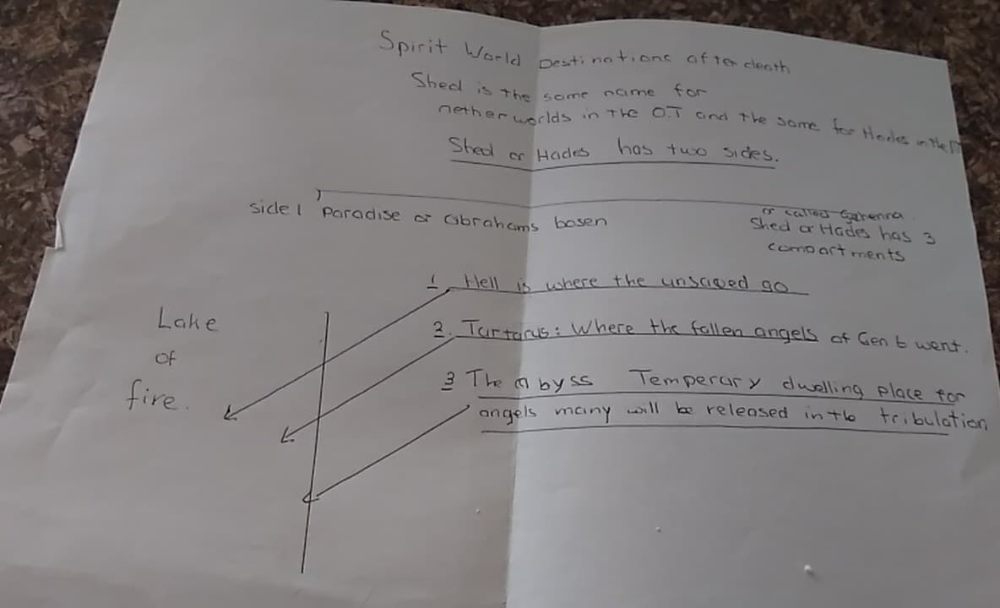 Spirit World Destinations after death
Shed is the same name for
nether worlds in the O.T and the same for Hades in the
Shed or Hades has two sides.
side 1 Paradise or Abrahams bosen
or called Gehenna
Shed or Hades has 3
compartments
1 Hell is where the unsaved go
2. Tartarus: Where the fallen angels of Gen 6 went.
3 The Abyss Temperary dwelling place for
angels many will be released in tb tribulation
Lake
of
fire.